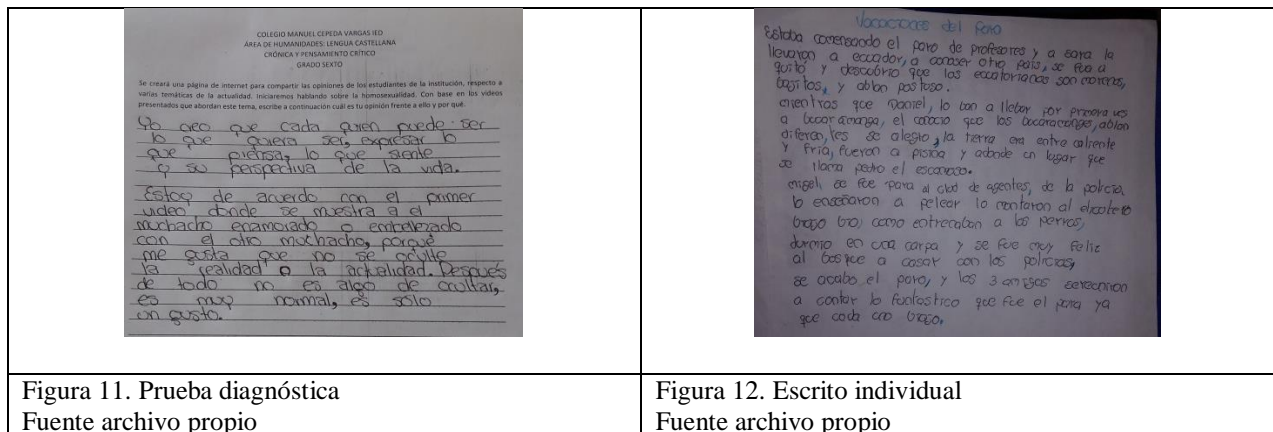 COLEGIO MANUEL CEPEDA VARGAS IED
ÁREA DE HUMANIDADES: LENGUA CASTELLANA
CRÓNICA Y PENSAMIENTO CRÍTICO
GRADO SEXTO
Se creará una página de internet para compartir las opiniones de los estudiantes de la institución, respecto a
varias temáticas de la actualidad. Iniciaremos hablando sobre la homosexualidad. Con base en los videos
presentados que abordan este tema, escribe a continuación cuál es tu opinión frente a ello y por qué.
Yo creo que cada quien puede ser
lo que quiera ser, expresar lo
que piensa, lo que siente
y su perspectiva de la vida.
Estoy de acuerdo con el primer
video donde se muestra a el
muchacho enamorado o embelezado
con el otro muchacho, porqué
me gusta que no se oculte
la realidad o la actualidad. Después
de todo no es algo de ocultar,
es muy normal, es sólo
un gusto.
Vacaciones del paro
Estaba comensando el paro de profesores y a sara la
llevaron a ecuador, a conoser otro país, se fue a
quito y descubrio que los ecuatorianos son morenos,
bajitos, y ablan pastuso.
mientras que Daniel, lo ban a llebar por primera ves
a bucaramanga, el conocio que los ablan
diferentes se alegro, la tierra era entre caliente
y fria, fueron a pisina y a donde un lugar que
se llama pedro el
se fue para al club de agentes, de la policia,
lo enseñaron a pelear lo montaron al
como entrenaban a los perros,
durmio en una carpa y se fue muy feliz
al bosque a casar con los policias,
se acabo el paro, y los 3 amigos
a contar lo fantastico que fue el paro ya
que cada uno
Figura 11. Prueba diagnóstica
Fuente archivo propio
Figura 12. Escrito individual
Fuente archivo propio